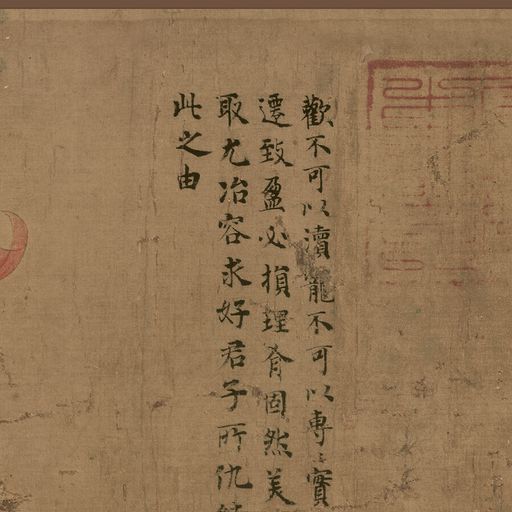 歡不可以瀆寵不可以專〻實
遷致盈必損理有固然美
取尤冶容求好君子所仇
此之由